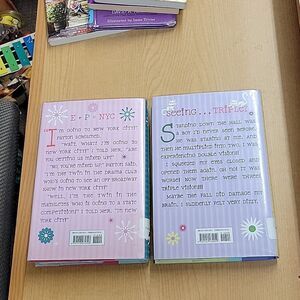 Illustrated by
E • P • NYC
"I'm going to New York City!"
Payton screamed.
"Wait, what? I'm going to
New York City!" I told her. "Are
you getting us mixed up?"
"No, you're getting us mixed up!
I'm the twin in the drama club
who's going to see an off-Broadway
show in New York City!"
"Well, I'm the twin in the
mathletes who is going to a state
competition!" I told her. "In New
York City!"
Seeing...Triple?
Standing down the hall was
a boy I'd never seen before.
He was staring at me. And
then he multiplied into two. I was
experiencing double vision!
I squeezed my eyes closed and
opened them again. Oh no! It was
worse! Now there were three!
Triple vision!!!
Maybe the fall did damage my
brain. I suddenly felt very dizzy.